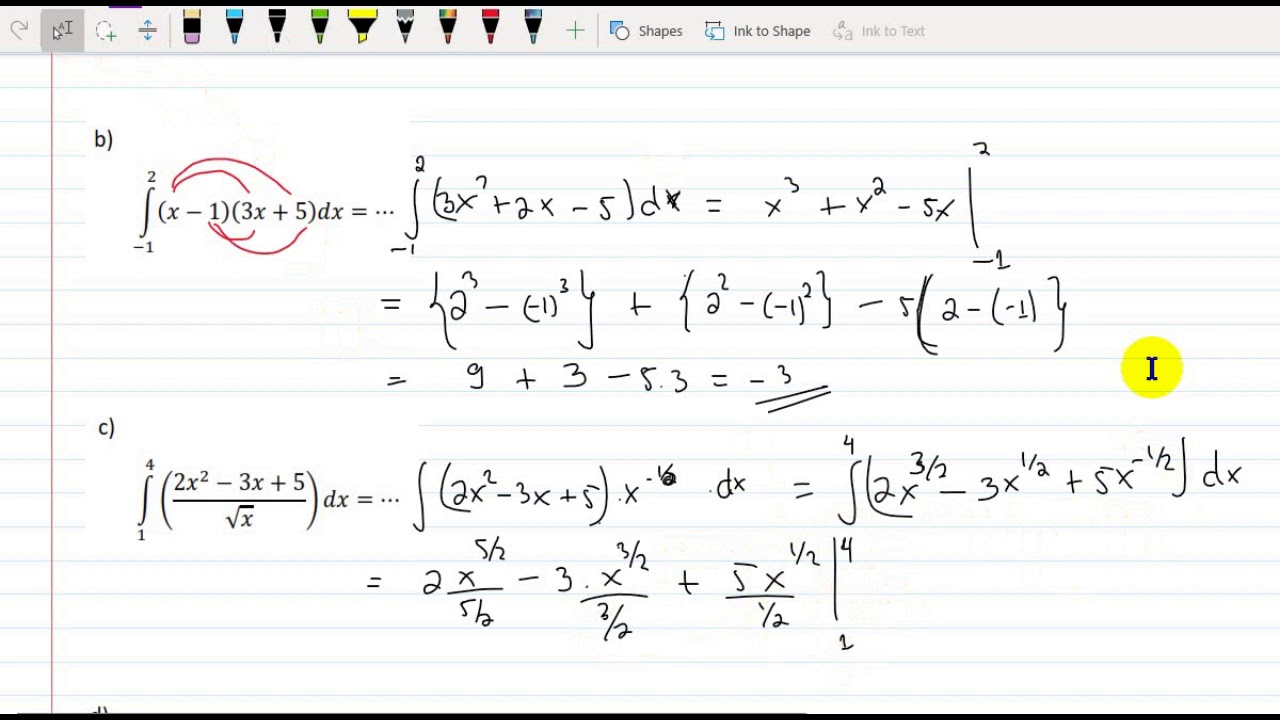 Shapes Ink to Shape Ink to Text
b)
∫₋₁² (x − 1)(3x + 5)dx = ··· ∫₋₁² (3x² + 2x − 5)dx = x³ + x² − 5x |₋₁²
= {2³ − (−1)³} + {2² − (−1)²} − 5{2 − (−1)}
= 9 + 3 − 5.3 = −3
c)
∫₁⁴ ((2x² − 3x + 5)/√x) dx = ··· ∫ (2x² − 3x + 5) . x^(−1/2) . dx = ∫⁴ (2x^(3/2) − 3x^(1/2) + 5x^(−1/2)) dx
= 2x^(5/2)/(5/2) − 3.x^(3/2)/(3/2) + 5x^(1/2)/(1/2) |₁⁴